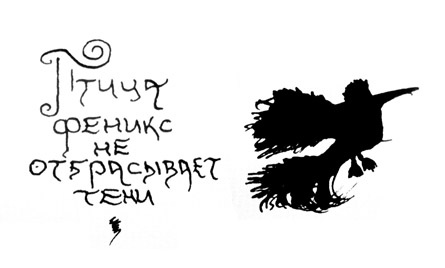 Птица
феникс
не
отбрасывает
тени